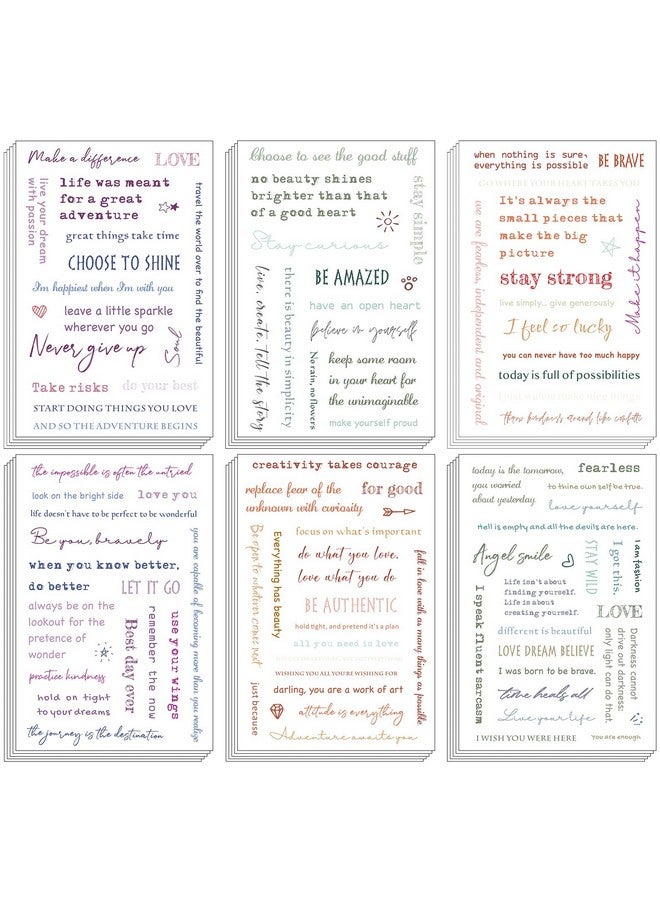 Make a difference
LOVE
live your dream
with passion
life was meant
for a great
adventure
travel the world over to find the beautiful
great things take time
CHOOSE TO SHINE
I'm happiest when I'm with you
leave a little sparkle
wherever you go
Never give up
Soul
Take risks
do your best
START DOING THINGS YOU LOVE
AND SO THE ADVENTURE BEGINS
Choose to see the good stuff
no beauty shines
brighter than that
of a good heart
stay simple
Stay curious
live, create, tell the story
there is beauty in simplicity
BE AMAZED
have an open heart
believe in yourself
No rain, no flowers
keep some room
in your heart for
the unimaginable
make yourself proud
when nothing is sure,
everything is possible
BE BRAVE
GO WHERE YOUR HEART TAKES YOU
we are fearless, independent and original
It's always the
small pieces that
make the big
picture
Make it happen
stay strong
live simply... give generously
I feel so lucky
you can never have too much happy
today is full of possibilities
I just want to make nice things
throw kindness around like confetti
the impossible is often the untried
look on the bright side
love you
life doesn't have to be perfect to be wonderful
Be you, bravely
when you know better,
do better
LET IT GO
you are capable of becoming more than you realize
always be on the
lookout for the
pretence of
wonder
Best day ever
remember the now
use your wings
practice kindness
hold on tight
to your dreams
the journey is the destination
creativity takes courage
replace fear of the
unknown with curiosity
for good
Be open to whatever comes next
Everything has beauty
focus on what's important
do what you love,
love what you do
fall in love with as many things as possible
BE AUTHENTIC
hold tight, and pretend it's a plan
all you need is love
WISHING YOU ALL YOU'RE WISHING FOR
just because
darling, you are a work of art
attitude is everything
Adventure awaits you
today is the tomorrow,
you worried
about yesterday
fearless
to thine own self be true.
love yourself
Hell is empty and all the devils are here.
Angel smile
STAY WILD
I got this.
I am fashion
I speak fluent sarcasm
Life isn't about
finding yourself.
Life is about
creating yourself.
LOVE
different is beautiful
LOVE DREAM BELIEVE
I was born to be brave.
Darkness cannot
drive out darkness:
only light can do that.
time heals all
Live your life
I WISH YOU WERE HERE
You are enough